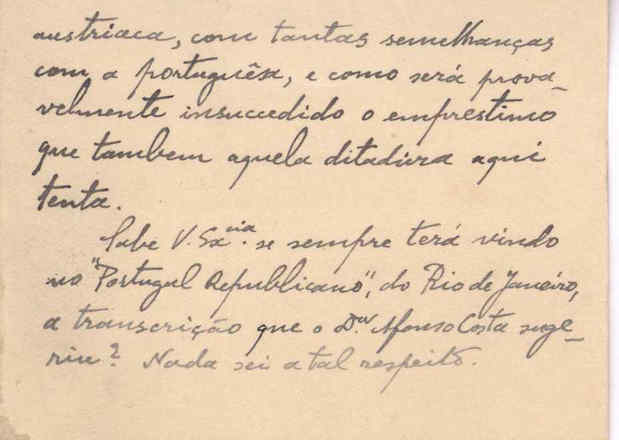 austriaca, com tantas semelhanças
com a portuguêsa, e como será prova-
velmente insuccedido o emprestimo
que tambem aquela ditadura aqui
tenta.
Sabe V. Exᶜⁱᵃ. se sempre terá vindo
no "Portugal Republicano", do Rio de Janeiro,
a transcrição que o Dᵒʳ. Afonso Costa suge-
riu? Nada sei a tal respeito.